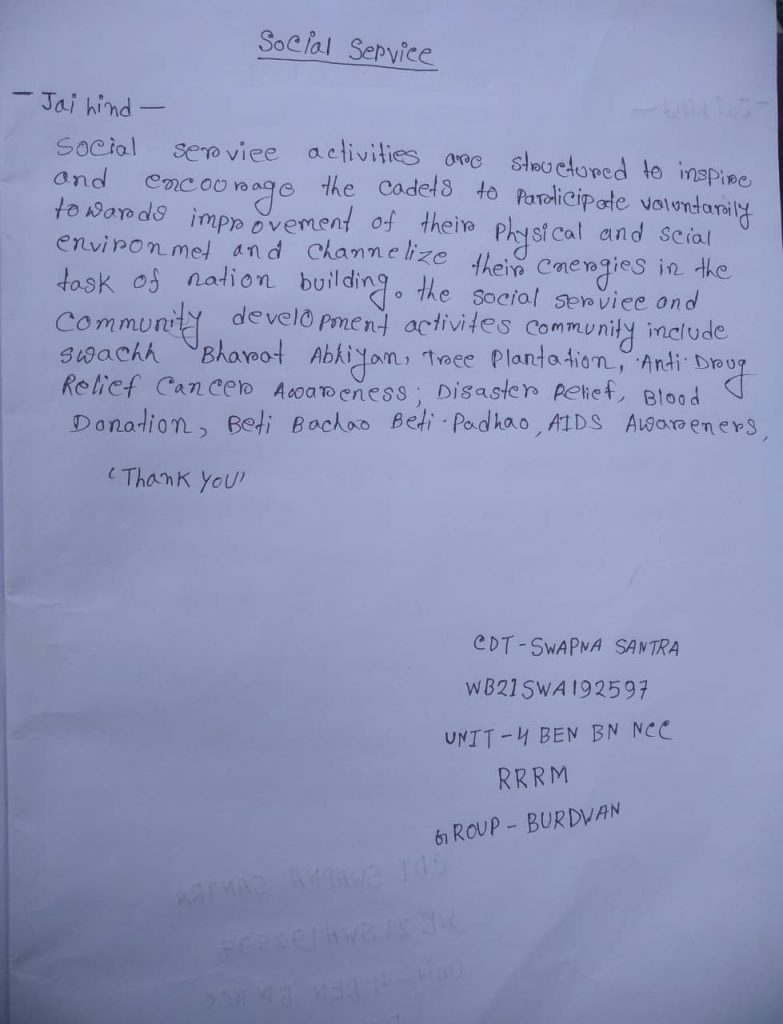 Social Service
- Jai hind -
Social serviee activities are structured to inspire
and encoorage the cadets to Participate voluntarily
towards improvement of their Physical and scial
environmet and Channelize their energies in the
task of nation building. the social serviee and
Community development activites community include
swachh Bharat Abhiyan, Tree Plantation, Anti Drug
Relief Cancer Awareness, Disaster Relief, Blood
Donation, Beti Bachao Beti-Padhao, AIDS Awareners,
'Thank you'
CDT-SWAPNA SANTRA
WB21SWA192597
UNIT-4 BEN BN NCC
RRRM
GROUP-BURDWAN